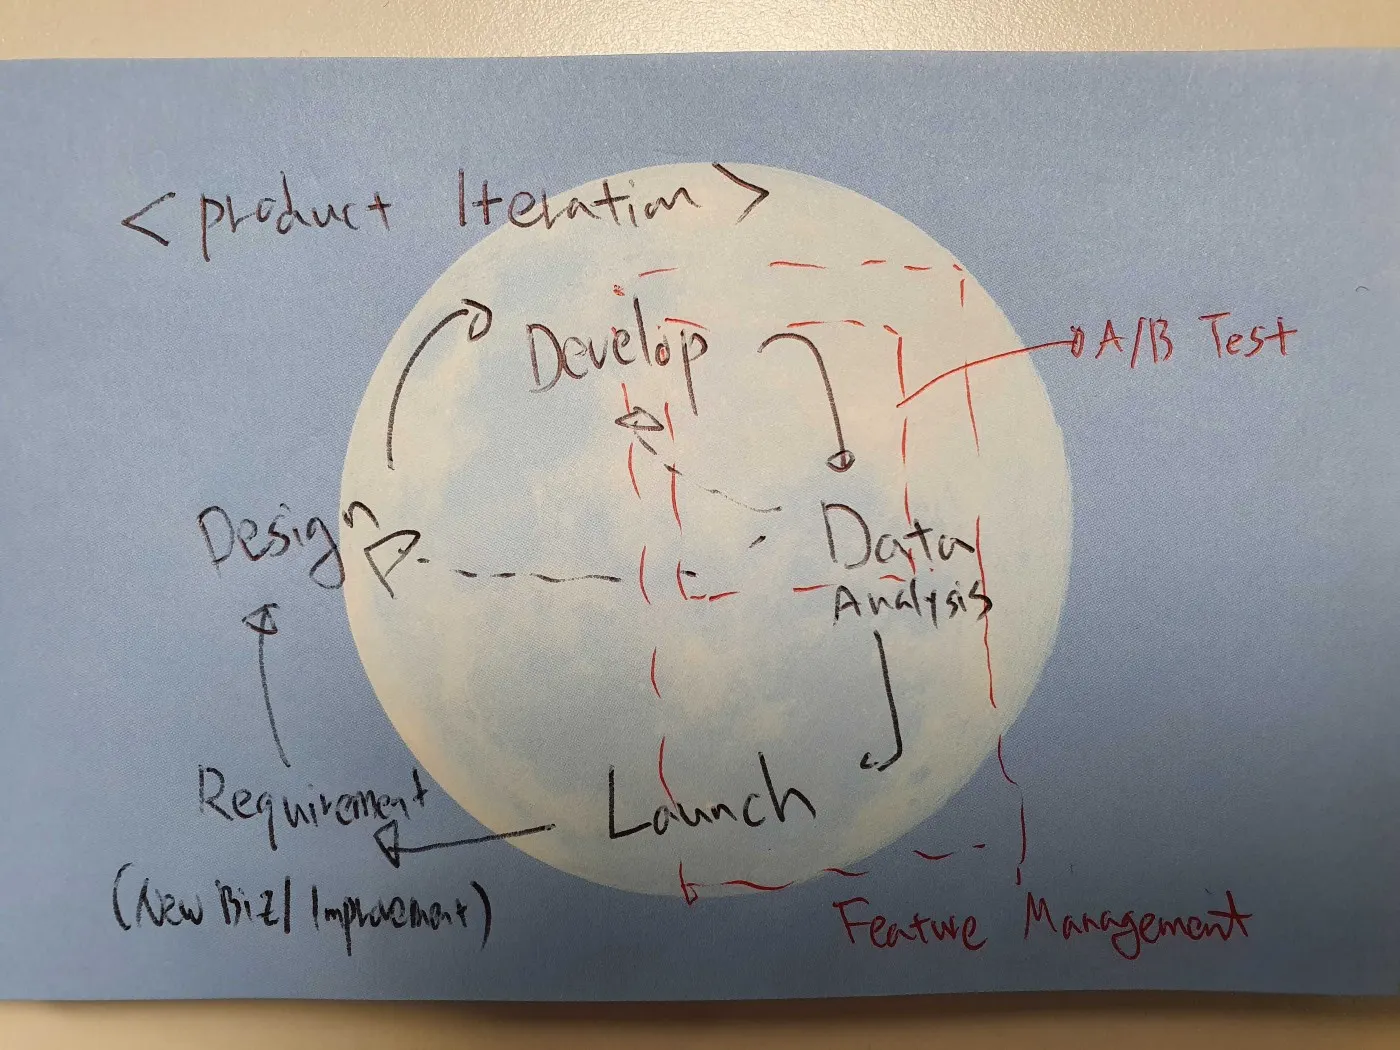 <product Iteration>
Develop
A/B Test
Design
Data
Analysis
Requirement
(New Biz/Improvement)
Launch
Feature Management